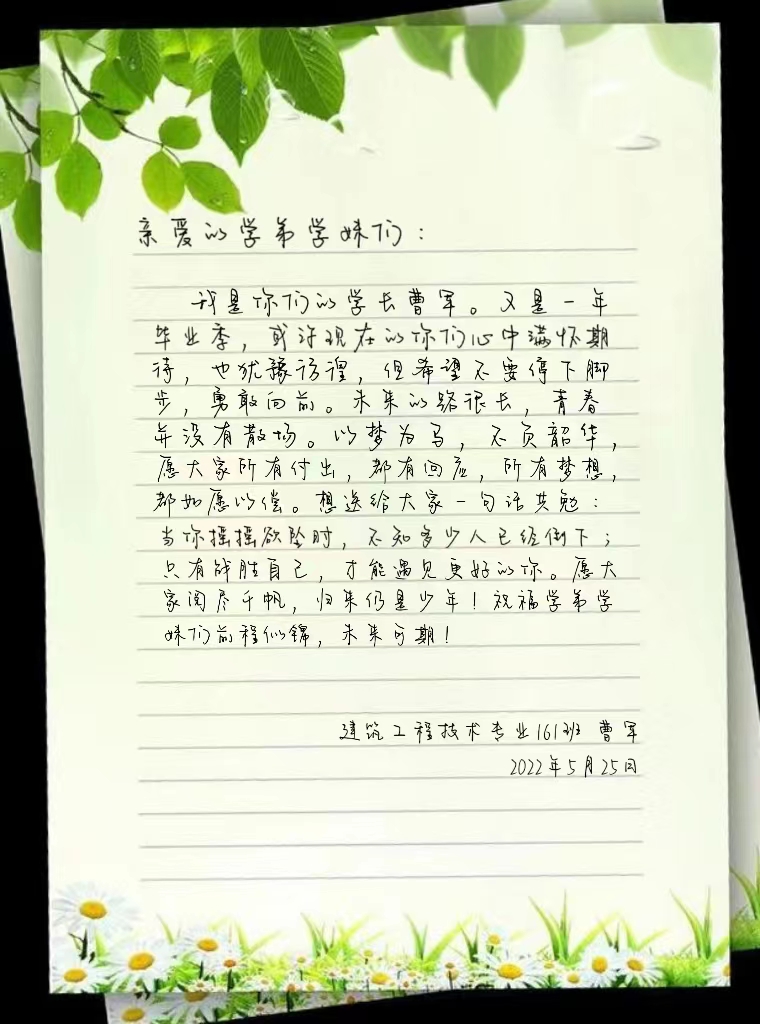 亲爱的学弟学妹们：
我是你们的学长曹军。又是一年
毕业季，或许现在的你们心中满怀期
待，也犹豫彷徨，但希望不要停下脚
步，勇敢向前。未来的路很长，青春
并没有散场。以梦为马，不负韶华，
愿大家所有付出，都有回应，所有梦想，
都如愿以偿。想送给大家一句话共勉：
当你摇摇欲坠时，不知多少人已经倒下；
只有战胜自己，才能遇见更好的你。愿大
家阅尽千帆，归来仍是少年！祝福学弟学
妹们前程似锦，未来可期！
建筑工程技术专业161班 曹军
2022年5月25日